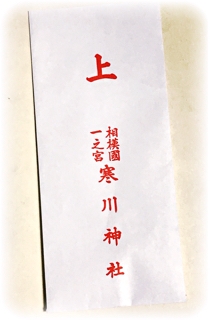 上
相模國
一之宮
寒川神社